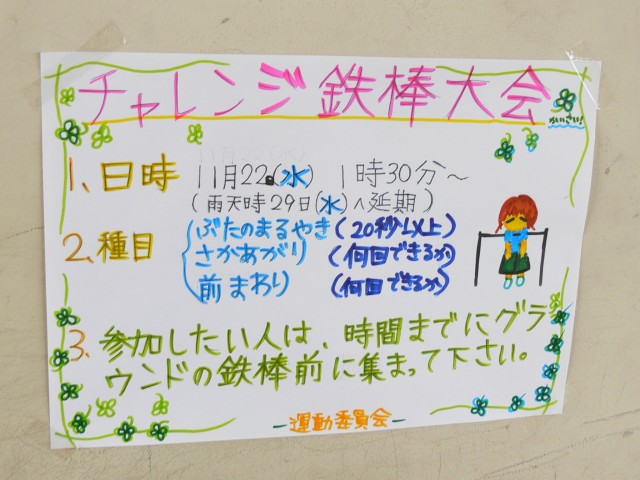 チャレンジ鉄棒大会
かいさい!
1、日時 11月22(水) 1時30分～
(雨天時29日(水)へ延期)
2、種目 ぶたのまるやき (20秒以上)
さかあがり (何回できるか)
前まわり (何回できるか)
3、参加したい人は、時間までにグラ
ウンドの鉄棒前に集まって下さい。
-運動委員会-